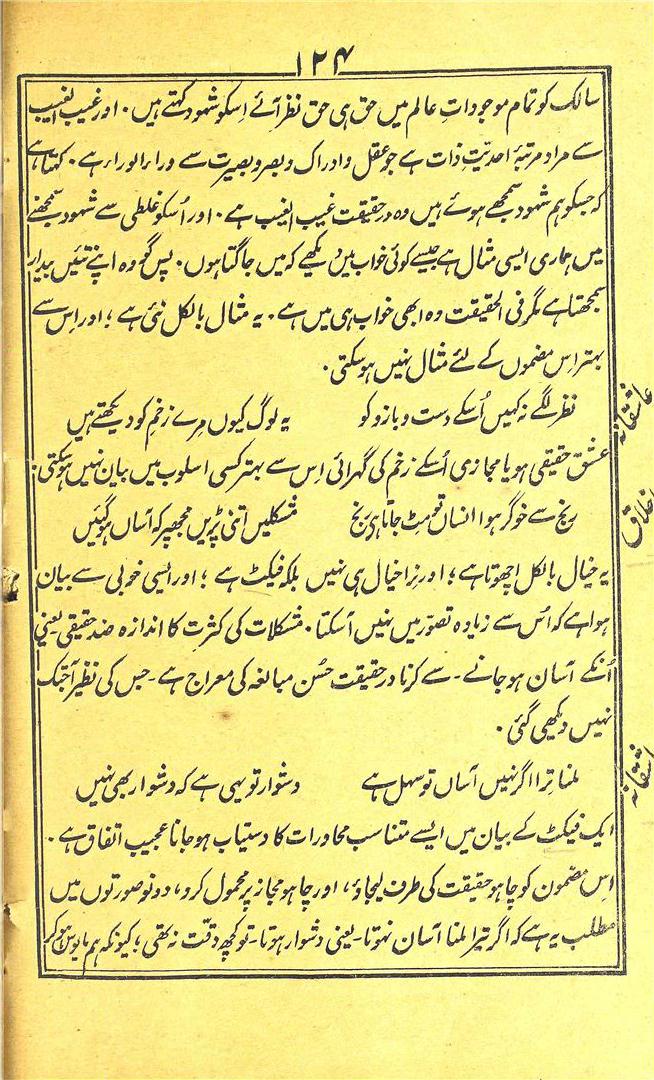 ۱۲۴
سالک کو تمام موجوداتِ عالم میں حق ہی حق نظر آئے اِسکو شہود کہتے ہیں۔ اور غیب الغیب
سے مراد مرتبۂ احدیّتِ ذات ہے جو عقل و ادراک و بصر و بصیرت سے وراء الوراء ہے۔ کہتا ہے
کہ جسکو ہم شہود سمجھے ہوئے ہیں وہ درحقیقت غیب الغیب ہے۔ اور اُسکو غلطی سے شہود سمجھنے
میں ہماری ایسی مثال ہے جیسے کوئی خواب میں دیکھے کہ میں جاگتا ہوں۔ پس گو وہ اپنے تئیں بیدار
سمجھتا ہے مگر فی الحقیقت وہ ابھی خواب ہی میں ہے۔ یہ مثال بالکل نئی ہے؛ اور اِس سے
بہتر اِس مضموں کے لئے مثال نہیں ہوسکتی۔
عاشقانہ
نظر لگے نہ کہیں اُسکے دست و بازو کو یہ لوگ کیوں مرے زخمِ کو دیکھتے ہیں
عشق حقیقی ہو یا مجازی اُسکے زخم کی گہرائی اِس سے بہتر کسی اسلوب میں بیان نہیں ہوسکتی۔
اخلاق
رنج سے خوگر ہوا انساں تو مٹ جاتا ہے رنج مشکلیں اتنی پڑیں مجھپر کہ آساں ہوگئیں
یہ خیال بالکل اچھوتا ہے؛ اور نِرا خیال ہی نہیں بلکہ فیکٹ ہے؛ اور ایسی خوبی سے بیان
ہوا ہے کہ اُس سے زیادہ تصوّر میں نہیں آسکتا۔ مشکلات کی کثرت کا اندازہ ضد حقیقی۔ یعنی
اُنکے آسان ہوجانے۔ سے کرنا درحقیقت حُسن مبالغہ کی معراج ہے۔ جس کی نظیر آجتک
نہیں دیکھی گئی۔
عاشقانہ
ملنا تِرا اگر نہیں آساں تو سہل ہے دشوار تو یہی ہے کہ دشوار بھی نہیں
ایک فیکٹ کے بیان میں ایسے متناسب محاورات کا دستیاب ہوجانا عجیب اتفاق ہے۔
اِس مضمون کو چاہو حقیقت کی طرف لیجاؤ، اور چاہو مجاز پر محمول کرو، دونو صورتوں میں
مطلب یہ ہے کہ اگر تیرا ملنا آسان نہوتا۔ یعنی دشوار ہوتا۔ تو کچھ دقّت نہ تھی؛ کیونکہ ہم مایوس ہوکر